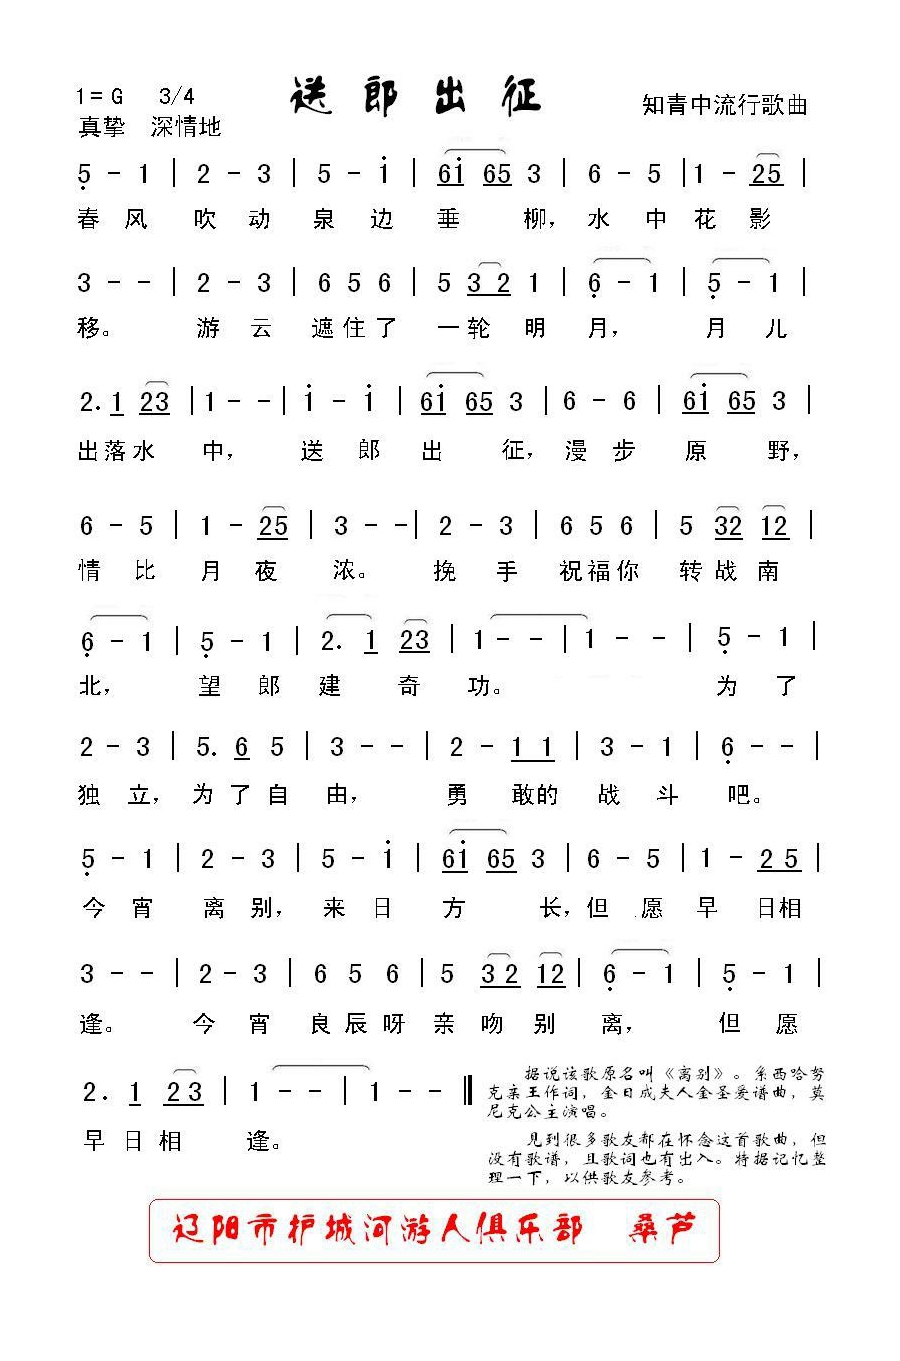 1=G 3/4 送郎出征 知青中流行歌曲
真挚 深情地
5 - 1 | 2 - 3 | 5 - i | 6i 65 3 | 6 - 5 | 1 - 25 |
春风 吹动 泉边 垂 柳，水中花影
3 - - | 2 - 3 | 6 5 6 | 5 32 1 | 6 - 1 | 5 - 1 |
移。 游云 遮住了 一轮明月， 月儿
2. 1 23 | 1 - - | i - i | 6i 65 3 | 6 - 6 | 6i 65 3 |
出落水 中， 送郎出 征，漫步原 野，
6 - 5 | 1 - 25 | 3 - - | 2 - 3 | 6 5 6 | 5 32 12 |
情比 月夜 浓。 挽手 祝福你 转战南
6 - 1 | 5 - 1 | 2. 1 23 | 1 - - | 1 - - | 5 - 1 |
北， 望郎建 奇功。 为了
2 - 3 | 5. 6 5 | 3 - - | 2 - 11 | 3 - 1 | 6 - - |
独立，为了自由， 勇敢的战斗吧。
5 - 1 | 2 - 3 | 5 - i | 6i 65 3 | 6 - 5 | 1 - 25 |
今宵 离别，来日方 长，但愿早日相
3 - - | 2 - 3 | 6 5 6 | 5 32 12 | 6 - 1 | 5 - 1 |
逢。 今宵 良辰呀 亲吻别离， 但愿
2. 1 23 | 1 - - | 1 - - ‖
早日相 逢。
据说该歌原名叫《离别》。系西哈努
克亲王作词，金日成夫人金圣爱谱曲，莫
尼克公主演唱。
见到很多歌友都在怀念这首歌曲，但
没有歌谱，且歌词也有出入。特据记忆整
理一下，以供歌友参考。
辽阳市护城河游人俱乐部 桑芦